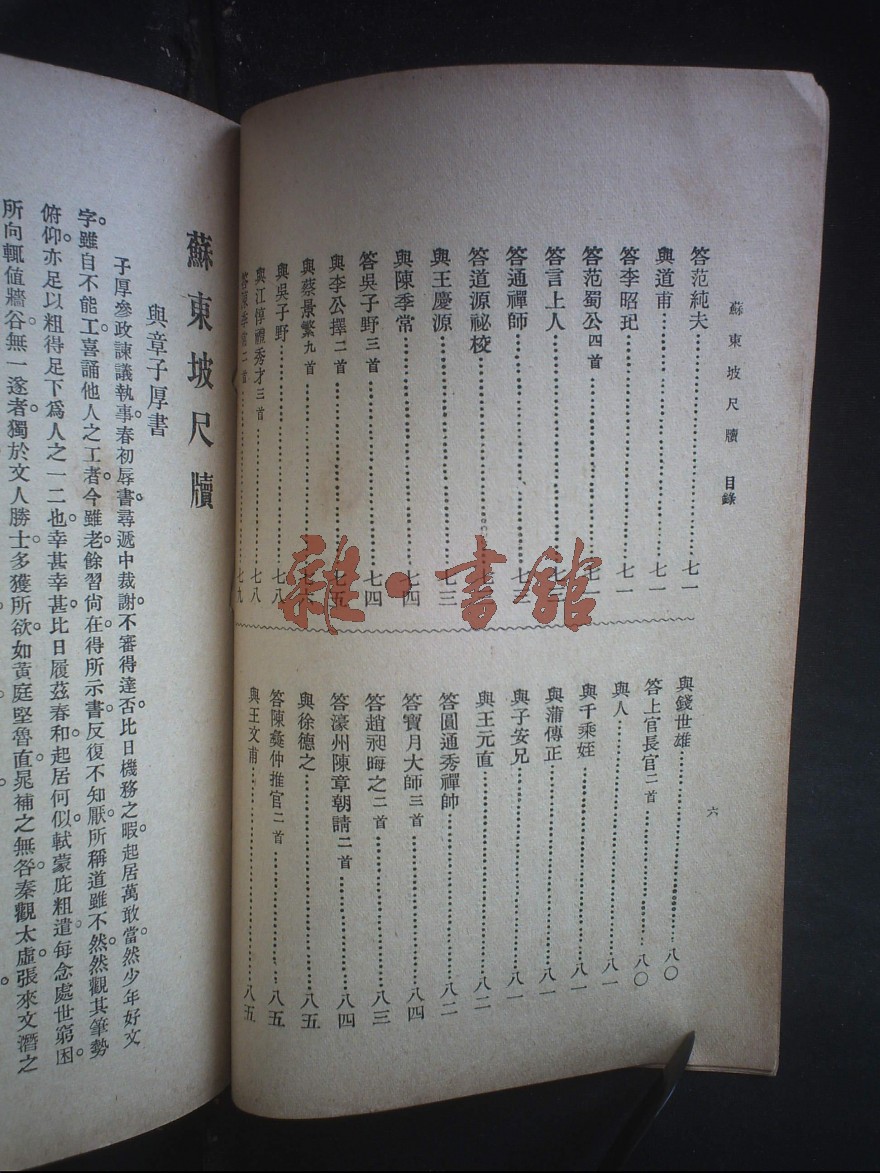 蘇東坡尺牘 目錄
六
答范純夫……七一
與道甫……七一
答李昭玘……七一
答范蜀公四首……七一
答言上人……七二
答通禪師……七三
答道源祕校……七三
與王慶源……七三
與陳季常……七四
答吳子野三首……七四
與李公擇二首……七五
與蔡景繁九首……七六
與吳子野……七八
與江惇禮秀才三首……七八
答陳季常二首……七九
與錢世雄……八〇
答上官長官二首……八〇
與人……八一
與千乘姪……八一
與蒲傳正……八一
與子安兄……八一
與王元直……八二
答圓通秀禪師……八二
答寶月大師三首……八四
答趙昶晦之二首……八三
答濠州陳章朝請二首……八四
與徐德之……八五
答陳彝仲推官二首……八五
與王文甫……八五
蘇東坡尺牘
與章子厚書
子厚參政諫議執事。春初辱書。尋遞中裁謝。不審得達否。比日機務之暇。起居萬。敢當然少年好文
字。雖自不能工。喜誦他人之工者。今雖老。餘習尚在。得所示書。反復不知厭。所稱道雖不然。然觀其筆勢
俯仰。亦足以粗得足下爲人之一二也。幸甚幸甚。比日履茲春和。起居何似。軾蒙庇粗遣。每念處世窮困。
所向輒値牆谷。無一遂者。獨於文人勝士。多獲所欲。如黃庭堅魯直。晁補之無咎。秦觀太虛。張來文潛之
雜·書館